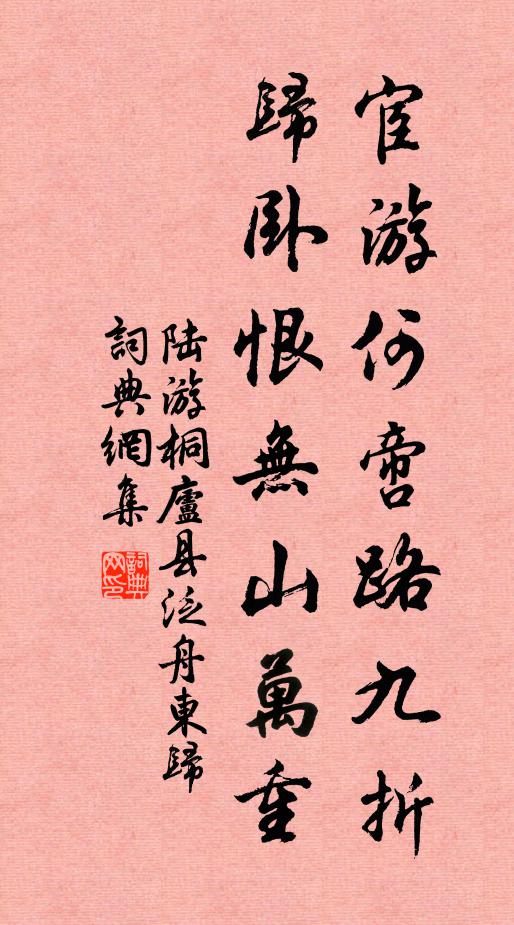 宦游何啻路九折
歸卧恨無山萬重
陆游桐廬县泛舟東歸
詞典網集
詞典
网印